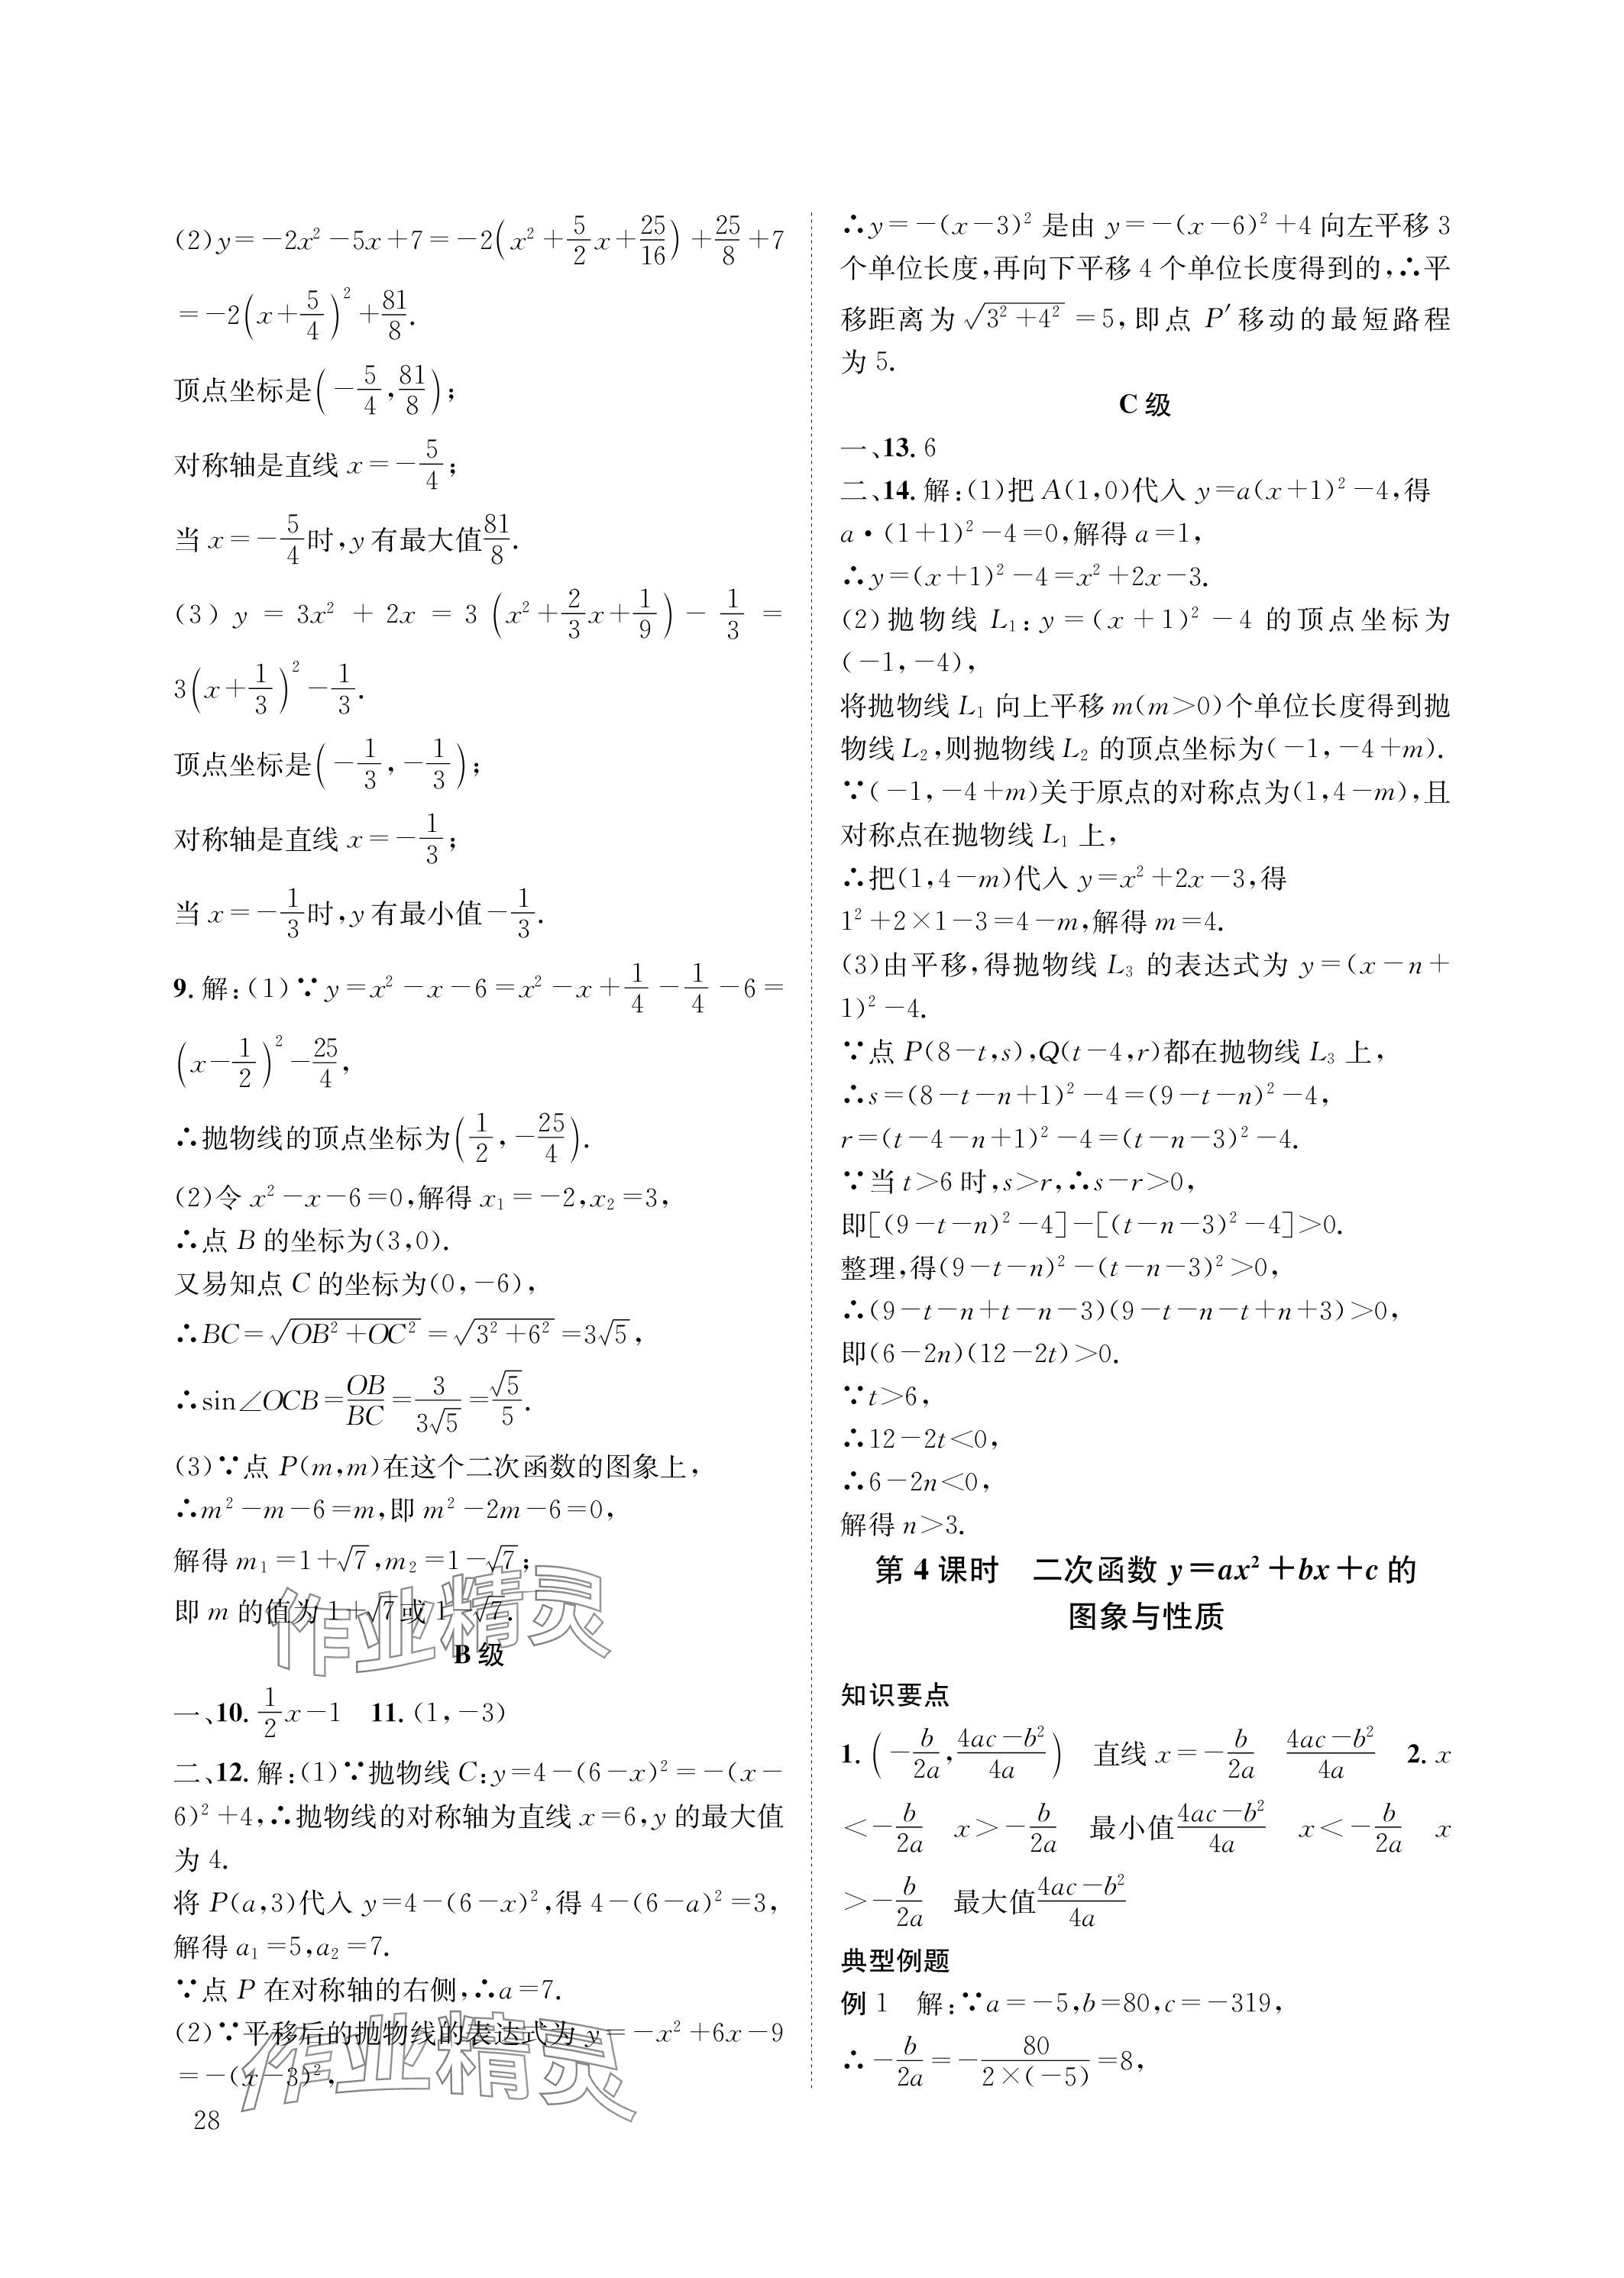 (2)y=-2x²-5x+7=-2(x²+5/2x+25/16)+25/8+7
=-2(x+5/4)²+81/8.
顶点坐标是(-5/4,81/8);
对称轴是直线 x=-5/4;
当 x=-5/4时,y 有最大值81/8.
(3) y = 3x² + 2x = 3 (x²+2/3x+1/9)- 1/3 =
3(x+1/3)²-1/3.
顶点坐标是(-1/3,-1/3);
对称轴是直线 x=-1/3;
当 x=-1/3时,y 有最小值-1/3.
9. 解:(1)∵y=x²-x-6=x²-x+1/4-1/4-6=
(x-1/2)²-25/4,
∴抛物线的顶点坐标为(1/2,-25/4).
(2)令 x²-x-6=0,解得 x₁=-2,x₂=3,
∴点 B 的坐标为(3,0).
又易知点 C 的坐标为(0,-6),
∴BC=√(OB²+OC²)=√(3²+6²)=3√5,
∴sin∠OCB=OB/BC=3/(3√5)=√5/5.
(3)∵点 P(m,m)在这个二次函数的图象上,
∴m²-m-6=m,即 m²-2m-6=0,
解得 m₁=1+√7,m₂=1-√7;
即 m 的值为 1+√7或 1-√7.
作业精灵
B 级
一、10. 1/2x-1 11. (1,-3)
二、12. 解:(1)∵抛物线 C:y=4-(6-x)²=-(x-
6)²+4,∴抛物线的对称轴为直线 x=6,y 的最大值
为 4.
将 P(a,3)代入 y=4-(6-x)²,得 4-(6-a)²=3,
解得 a₁=5,a₂=7.
∵点 P 在对称轴的右侧,∴a=7.
(2)∵平移后的抛物线的表达式为 y=-x²+6x-9
=-(x-3)²,
作业精灵
28
∴y=-(x-3)² 是由 y=-(x-6)²+4 向左平移 3
个单位长度,再向下平移 4 个单位长度得到的,∴平
移距离为 √(3²+4²)=5,即点 P′移动的最短路程
为 5.
C 级
一、13. 6
二、14. 解:(1)把 A(1,0)代入 y=a(x+1)²-4,得
a·(1+1)²-4=0,解得 a=1,
∴y=(x+1)²-4=x²+2x-3.
(2)抛物线 L₁:y=(x+1)²-4 的顶点坐标为
(-1,-4),
将抛物线 L₁ 向上平移 m(m>0)个单位长度得到抛
物线 L₂,则抛物线 L₂ 的顶点坐标为(-1,-4+m).
∵(-1,-4+m)关于原点的对称点为(1,4-m),且
对称点在抛物线 L₁ 上,
∴把(1,4-m)代入 y=x²+2x-3,得
1²+2×1-3=4-m,解得 m=4.
(3)由平移,得抛物线 L₃ 的表达式为 y=(x-n+
1)²-4.
∵点 P(8-t,s),Q(t-4,r)都在抛物线 L₃ 上,
∴s=(8-t-n+1)²-4=(9-t-n)²-4,
r=(t-4-n+1)²-4=(t-n-3)²-4.
∵当 t>6 时,s>r,∴s-r>0,
即[(9-t-n)²-4]-[(t-n-3)²-4]>0.
整理,得(9-t-n)²-(t-n-3)²>0,
∴(9-t-n+t-n-3)(9-t-n-t+n+3)>0,
即(6-2n)(12-2t)>0.
∵t>6,
∴12-2t<0,
∴6-2n<0,
解得 n>3.
第 4 课时 二次函数 y=ax²+bx+c 的
图象与性质
知识要点
1. (-b/2a,(4ac-b²)/4a) 直线 x=-b/2a (4ac-b²)/4a 2. x
<-b/2a x>-b/2a 最小值(4ac-b²)/4a x<-b/2a x
>-b/2a 最大值(4ac-b²)/4a
典型例题
例 1 解:∵a=-5,b=80,c=-319,
∴-b/2a=-80/(2×(-5))=8,